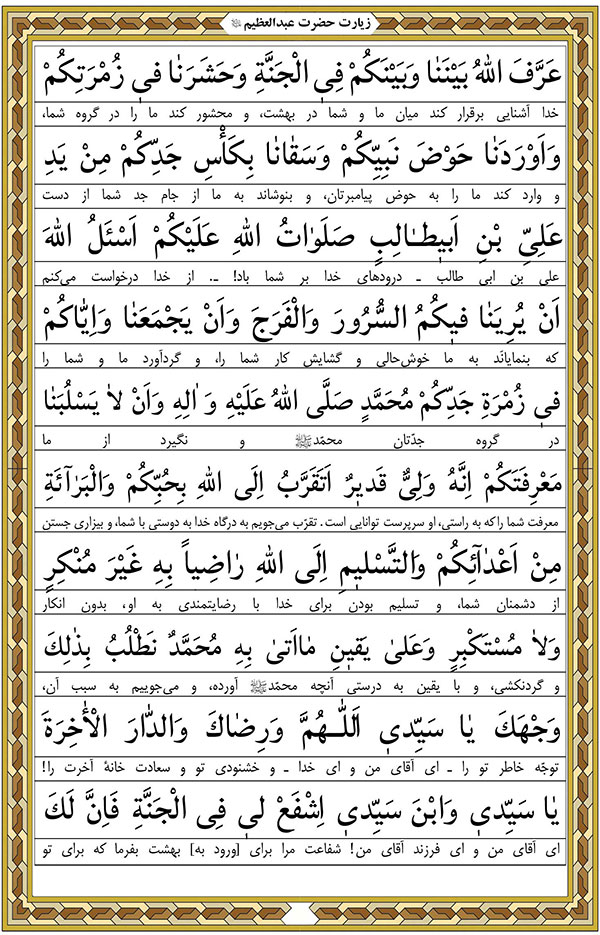 زیارت حضرت عبدالعظیم
عَرَّفَ اللهُ بَيْنَنٰا وَبَيْنَكُمْ فِى الْجَنَّةِ وَحَشَرَنٰا فى زُمْرَتِكُمْ
خدا آشنایی برقرار کند میان ما و شما در بهشت، و محشور کند ما را در گروه شما،
وَاَوْرَدَنٰا حَوْضَ نَبِيِّكُمْ وَسَقٰانٰا بِكَأْسِ جَدِّكُمْ مِنْ يَدِ
و وارد کند ما را به حوض پیامبرتان، و بنوشاند به ما از جام جد شما از دست
عَلِىِّ بْنِ اَبيطـٰالِبٍ صَلَوٰاتُ اللهِ عَلَيْكُمْ اَسْئَلُ اللهَ
علی بن ابی طالب ـ درودهای خدا بر شما باد! ـ. از خدا درخواست می‌کنم
اَنْ يُرِيَنٰا فيكُمُ السُّرُورَ وَالْفَرَجَ وَاَنْ يَجْمَعَنٰا وَاِيّٰاكُمْ
که بنمایاند به ما خوش‌حالی و گشایش کار شما را، و گردآورد ما و شما را
فى زُمْرَةِ جَدِّكُمْ مُحَمَّدٍ صَلَّى اللهُ عَلَيْهِ وَ اٰلِهِ وَاَنْ لاٰ يَسْلُبَنٰا
در گروه جدّتان محمّد ﷺ و نگیرد از ما
مَعْرِفَتَكُمْ اِنَّهُ وَلِىٌّ قَديرٌ اَتَقَرَّبُ اِلَى اللهِ بِحُبِّكُمْ وَالْبَرٰآئَةِ
معرفت شما را که به راستی، او سرپرست توانایی است. تقرّب می‌جویم به درگاه خدا به دوستی با شما، و بیزاری جستن
مِنْ اَعْدٰآئِكُمْ وَالتَّسْليمِ اِلَى اللهِ رٰاضِياً بِهِ غَيْرَ مُنْكِرٍ
از دشمنان شما، و تسلیم بودن برای خدا با رضایتمندی به او، بدون انکار
وَلاٰ مُسْتَكْبِرٍ وَعَلىٰ يَقينِ مٰااَتىٰ بِهِ مُحَمَّدٌ نَطْلُبُ بِذٰلِكَ
و گردنکشی، و با یقین به درستی آنچه محمّد ﷺ آورده، و می‌جوییم به سبب آن،
وَجْهَكَ يٰا سَيِّدى اَللّٰـهُمَّ وَرِضٰاكَ وَالدّٰارَ الْأٰخِرَةَ
توجّه خاطر تو را ـ ای آقای من و ای خدا ـ و خشنودی تو و سعادت خانهٔ آخرت را!
يٰا سَيِّدى وَابْنَ سَيِّدى اِشْفَعْ لى فِى الْجَنَّةِ فَاِنَّ لَكَ
ای آقای من و ای فرزند آقای من! شفاعت مرا برای [ورود به] بهشت بفرما که برای تو